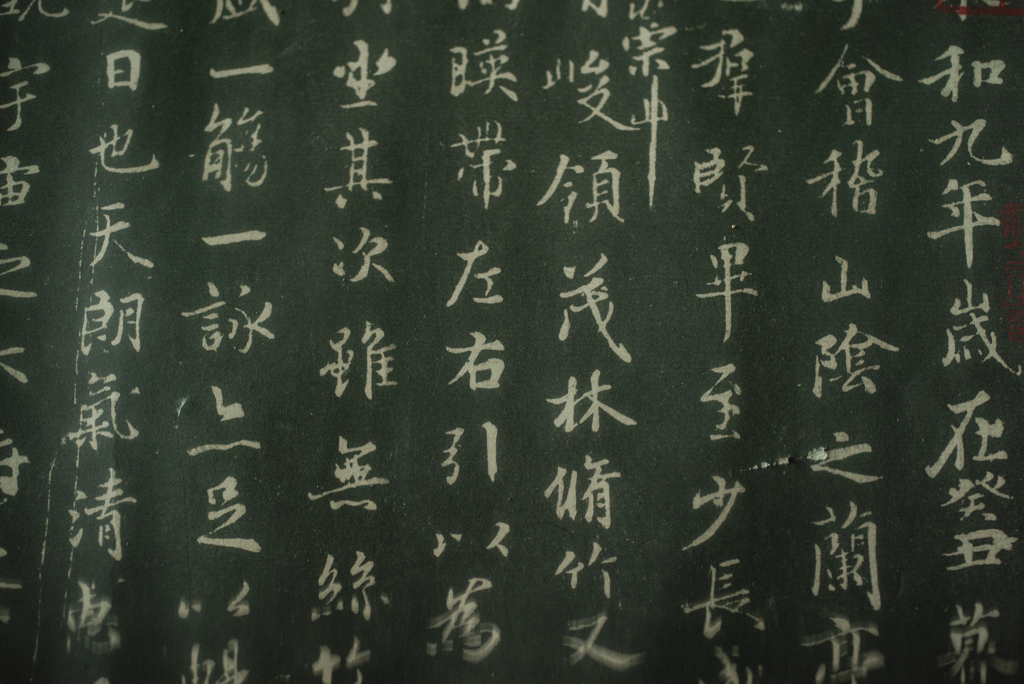 和九年歲在癸丑暮
會稽山陰之蘭亭
羣賢畢至少長
崇山
峻領茂林脩竹又
暎帶左右引以為
坐其次雖無絲竹
一觴一詠亦足以暢
是日也天朗氣清惠
宇宙之大